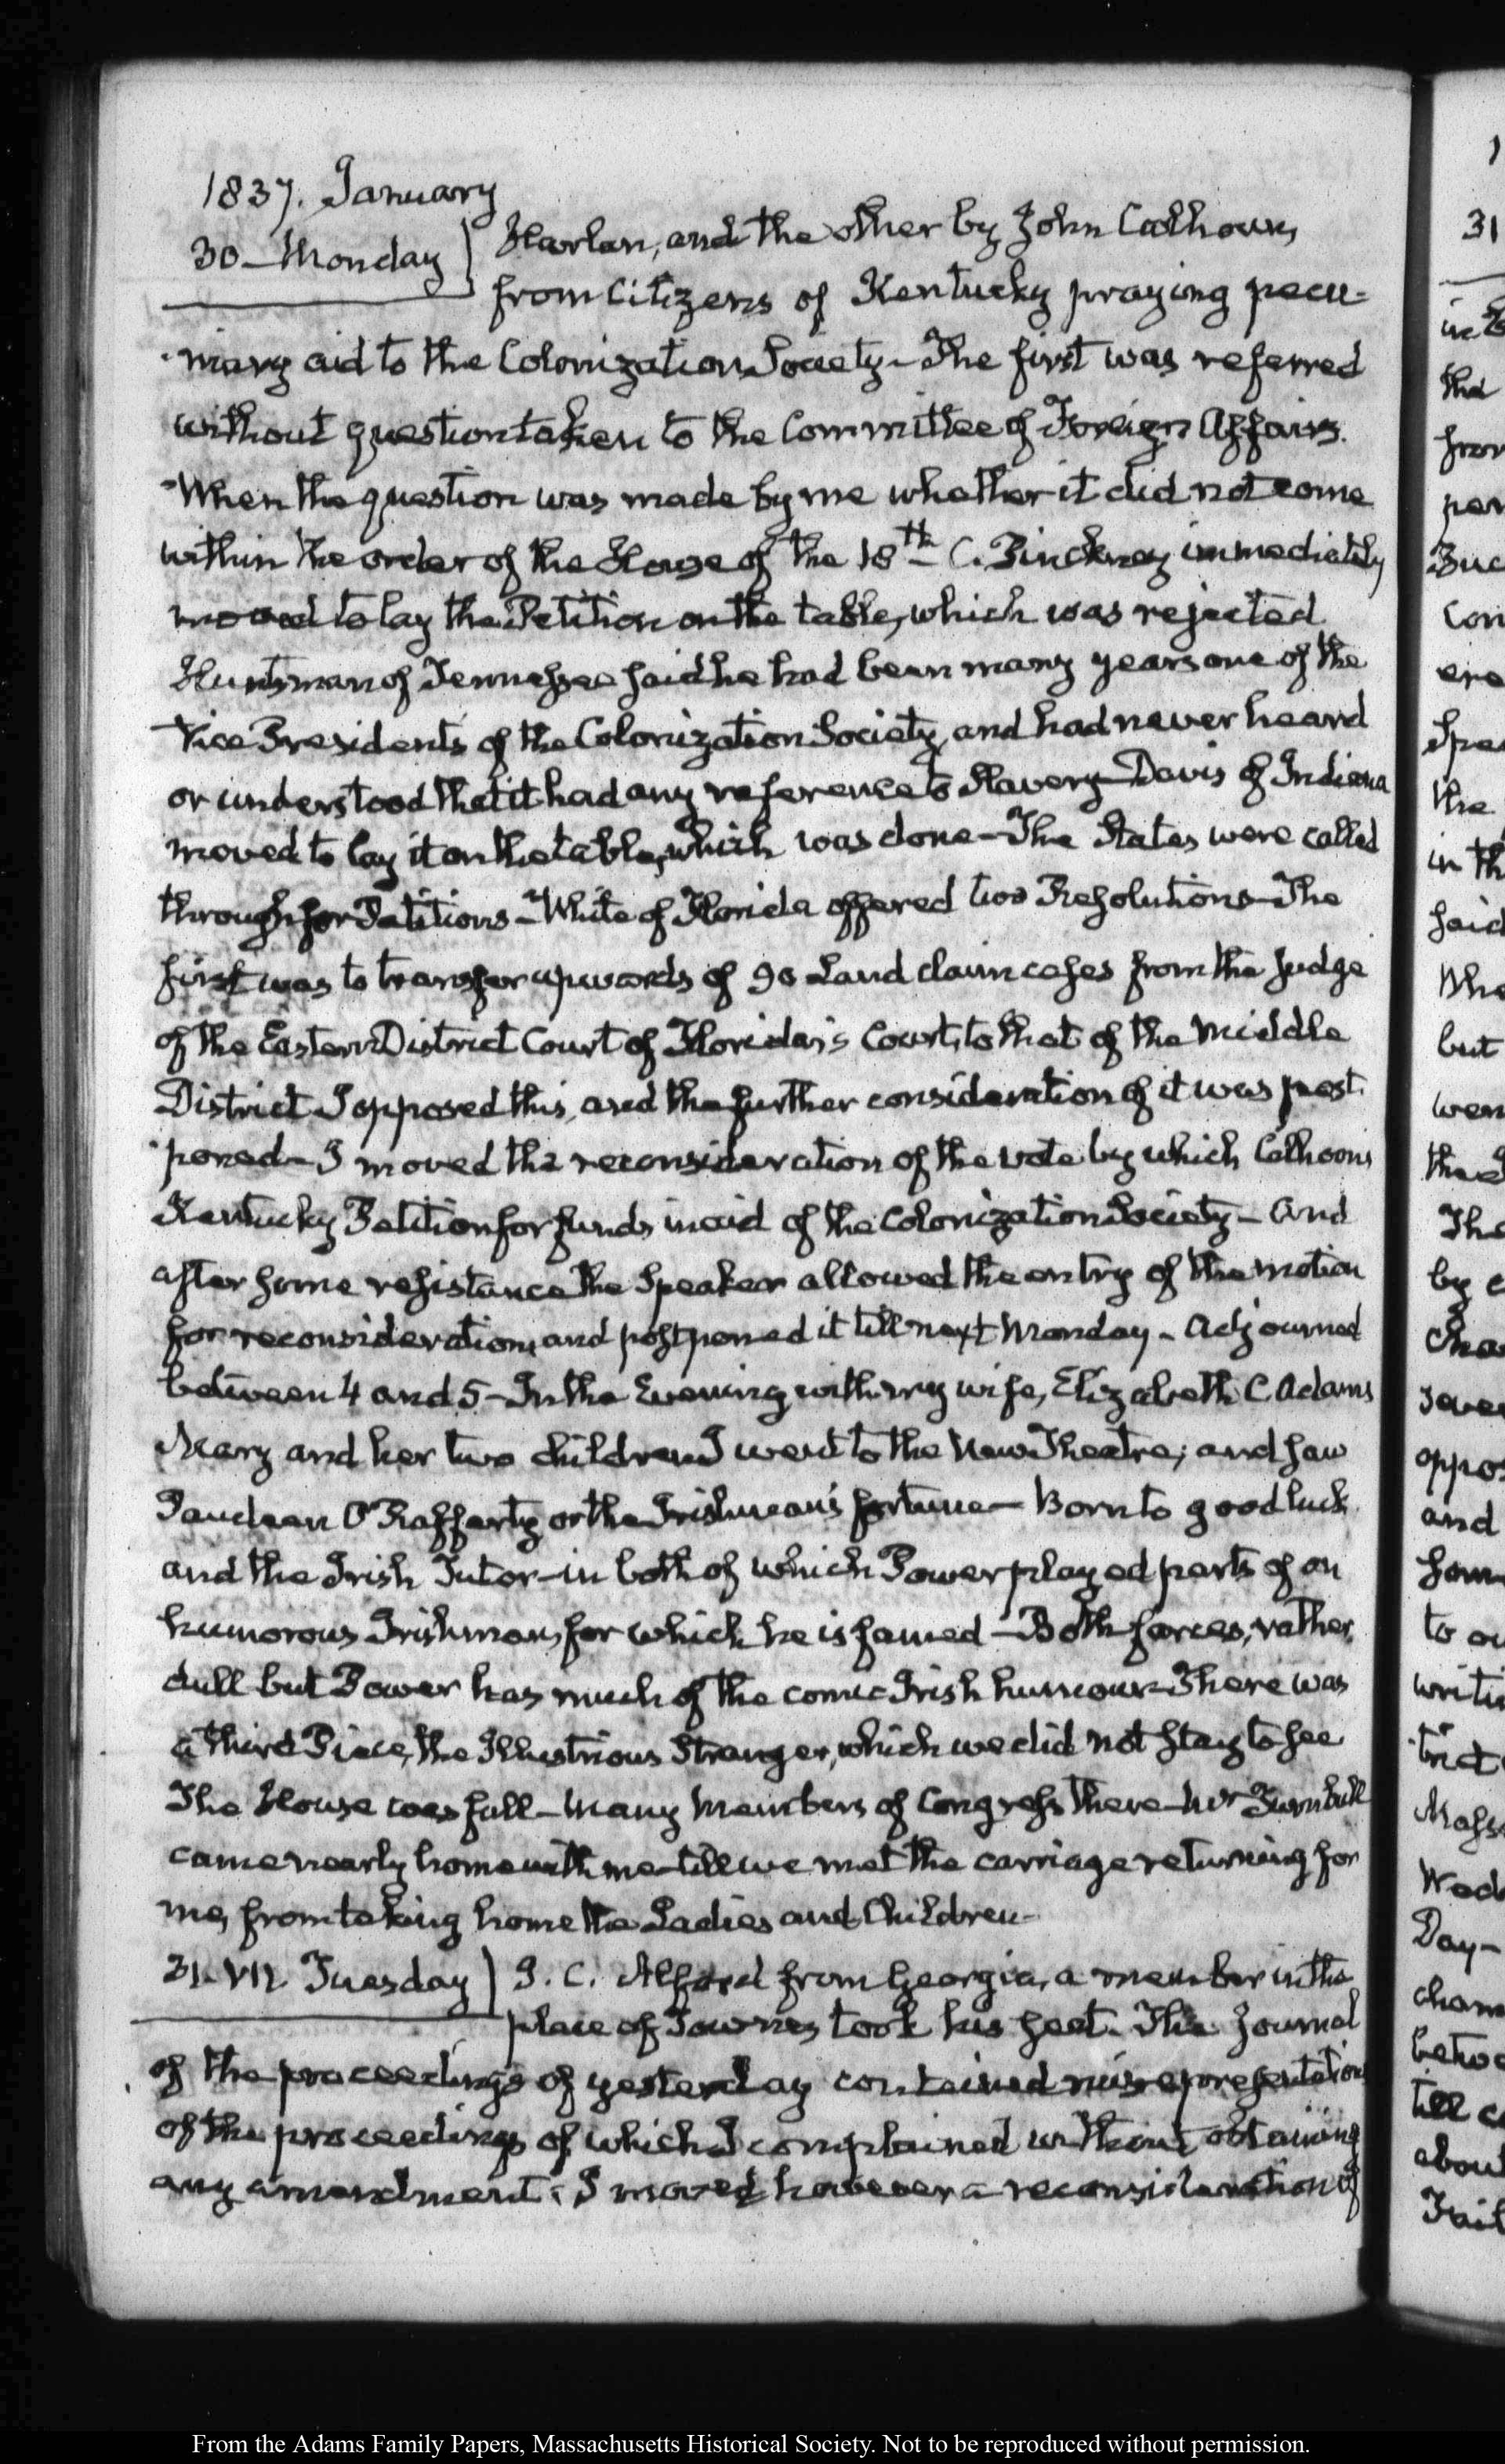 1837. January
30 - Monday } Harlan, and the other by John Calhoun,
from Citizens of Kentucky praying pecu-
-niary aid to the Colonization Society - The first was referred
without question taken to the Committee of Foreign Affairs.
When the question was made by me whether it did not come
within the order of the House of the 18th C. Pinckney immediately
moved to lay the Petition on the table, which was rejected
Huntsman of Tennessee said he had been many years one of the
Vice Presidents of the Colonization Society, and had never heard
or understood that it had any reference to Slavery - Davis of Indiana
moved to lay it on the table, which was done - The States were called
through for Petitions - White of Florida offered two Resolutions - The
first was to transfer upwards of 90 Land claim cases from the Judge
of the Eastern District Court of Florida's Court, to that of the Middle
District I opposed this, and the further consideration of it was post-
-poned - I moved the reconsideration of the vote by which Calhoon's
Kentucky Petition for funds in aid of the Colonization Society - And
after some resistance the Speaker allowed the entry of the motion
for reconsideration, and postponed it till next Monday - Adjourned
between 4 and 5 - In the Evening with my wife, Elizabeth C. Adams
Mary and her two children I went to the New Theatre; and saw
O'Rafferty or the Irishman's fortune - Born to good luck
and the Irish Tutor - in both of which Power played parts of an
humorous Irishman, for which he is famed - Both farces, rather
dull but Power has much of the comic Irish humour - There was
a third Piece, the Illustrious Stranger, which we did not stay to see
The House was full - Many Members of Congress there - Mr Turnbull
came nearly home with me - till we met the carriage returning for
me, from taking home the Ladies and Children -
31. VII. Tuesday } J. C. Alford from Georgia, a member in the
place of Townes took his seat. The Journal
of the proceedings of yesterday contained misrepresentations
of the proceedings of which I complained without obtaining
any amendment. I moved however a reconsideration of
1
31
the
but
The
and
to
Day -
From the Adams Family Papers, Massachusetts Historical Society. Not to be reproduced without permission.